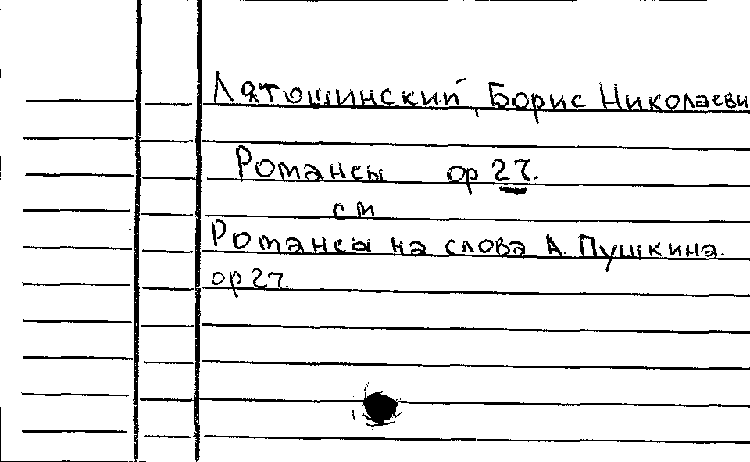 Лятошинский, Борис Николаеви
Романсы ор 27.
см
Романсы на слова А. Пушкина.
ор 27